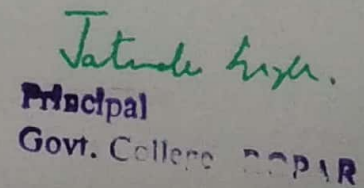 Jatinder Singh.
Principal
Govt. College ROPAR